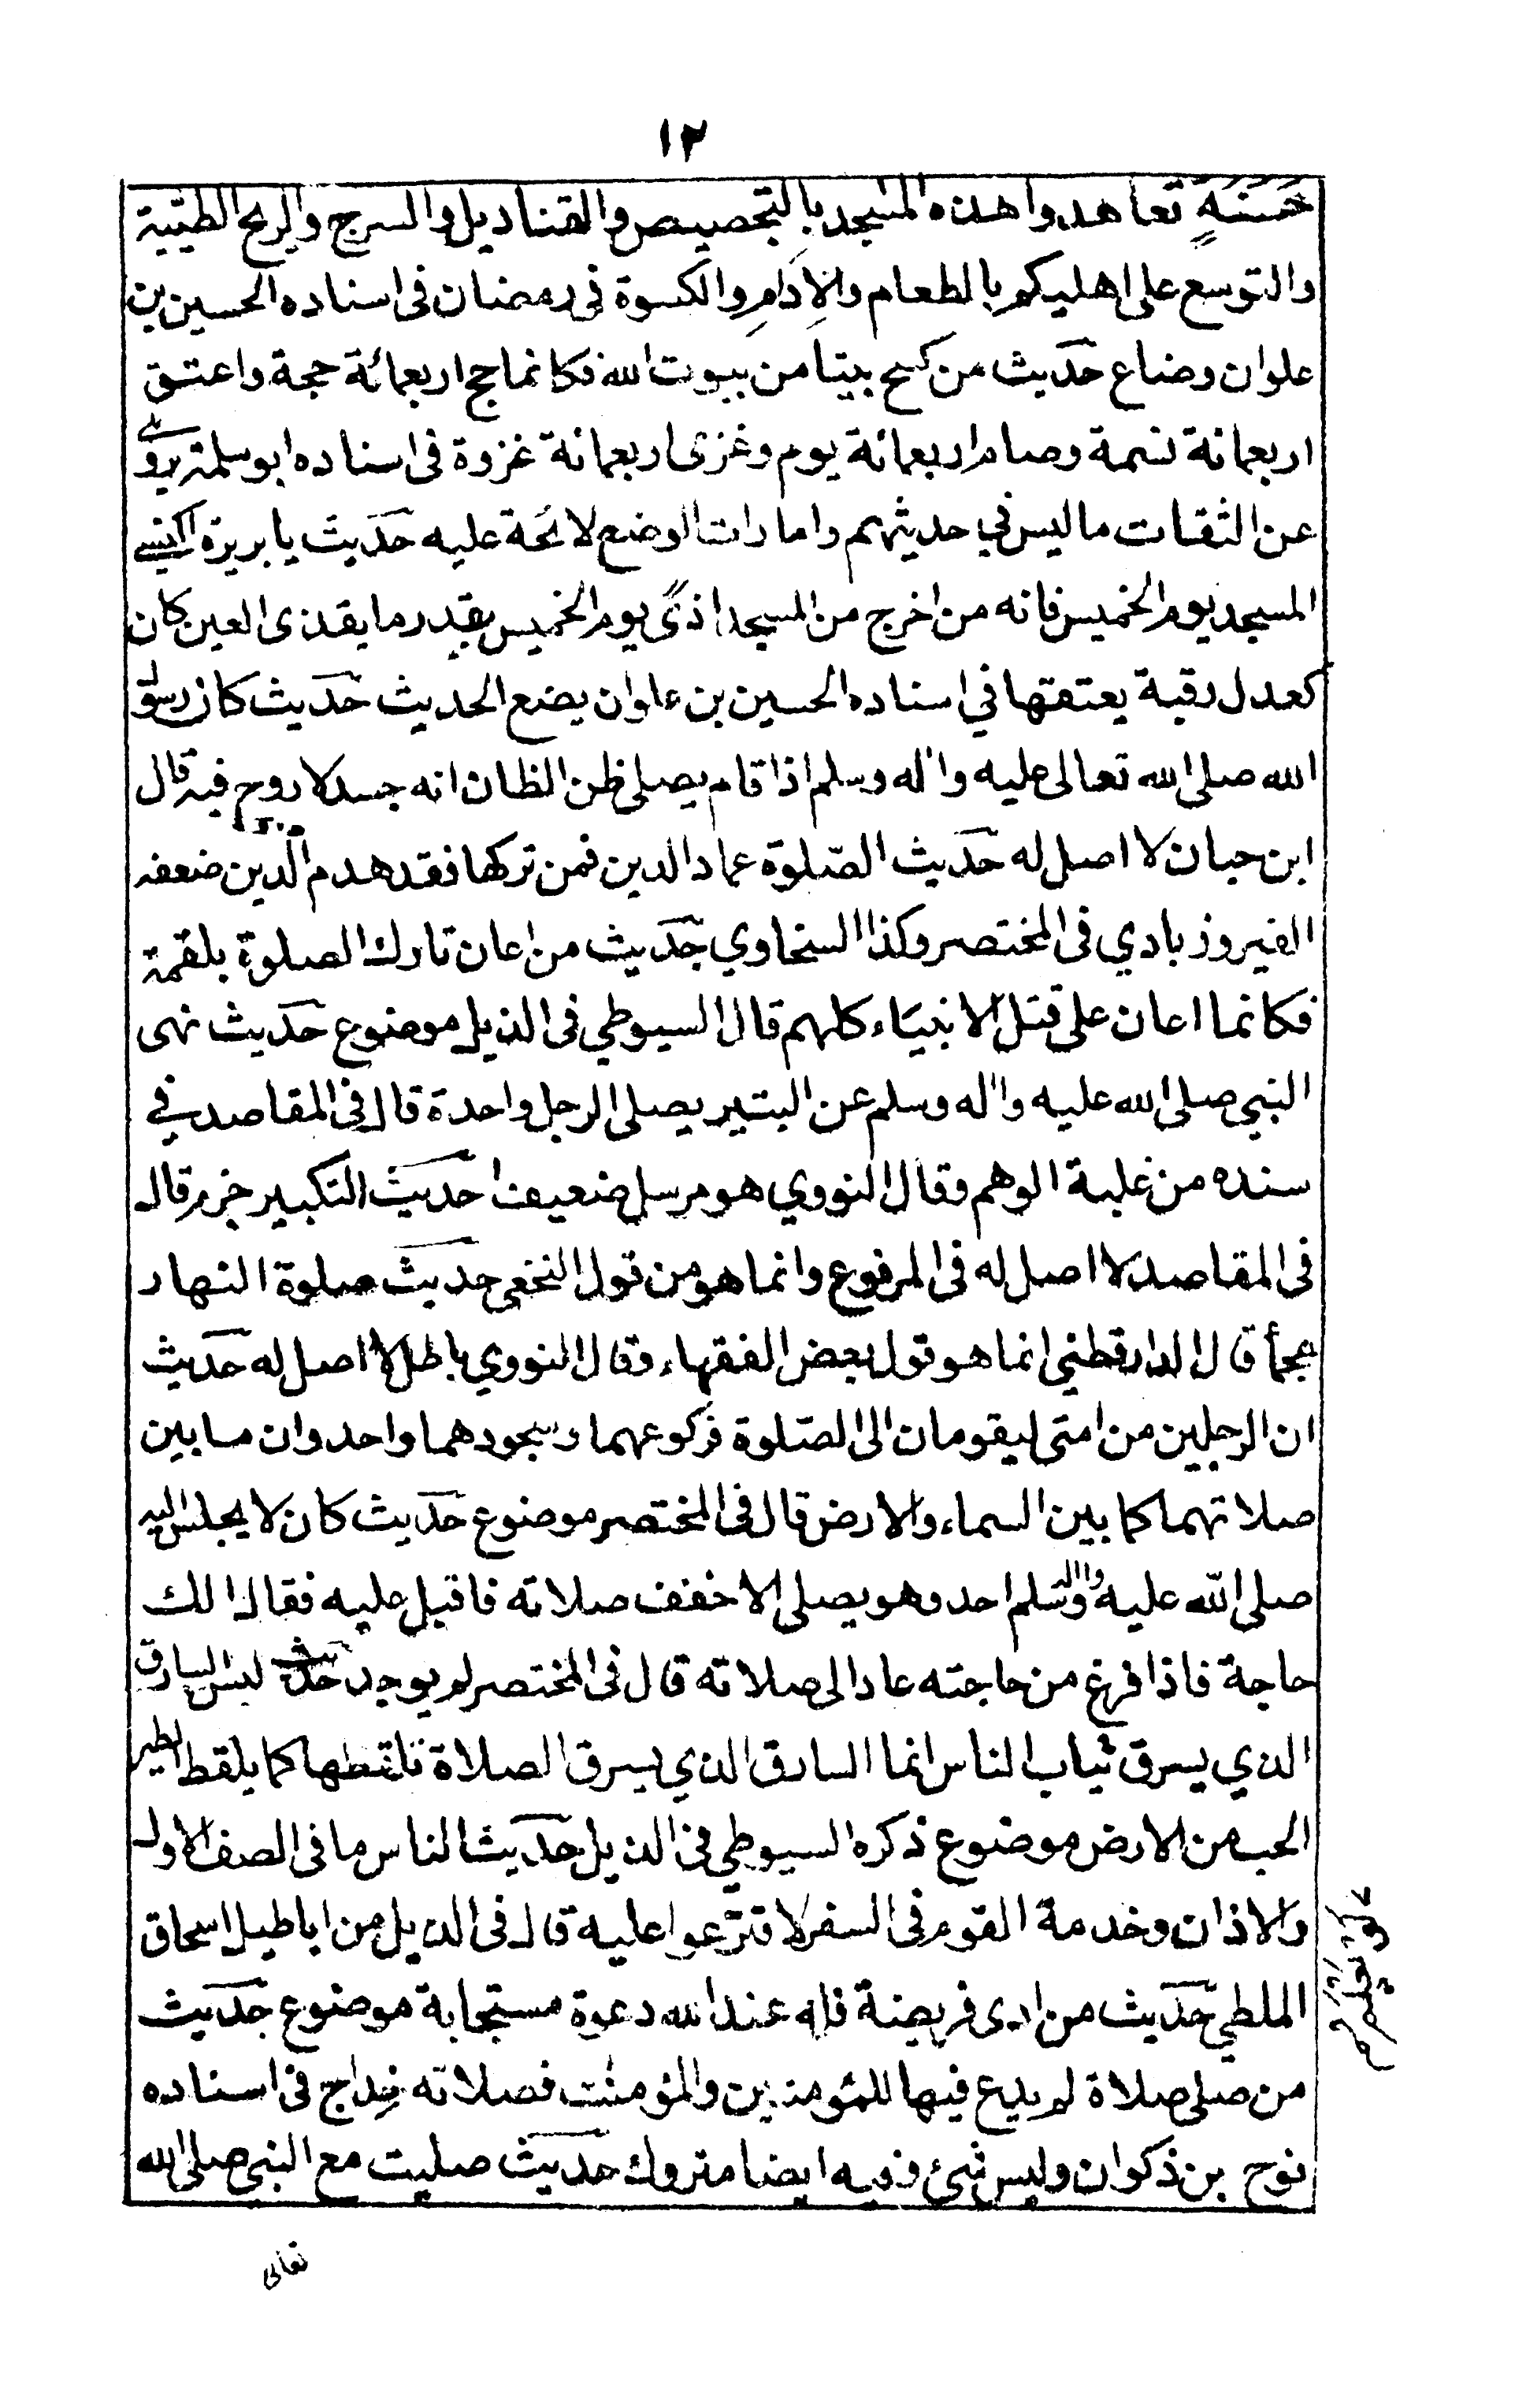 ١٢
حَسَنَةٍ تعاهدوا هذه المسجد بالتجصيص والقناديل والسرج والريح الطيّبة
والتوسع على اهليكم بالطعام والاِدَامِ والكسوة فى رمضان فى اسناده الحسين بن
علوان وضاع حديث من كسح بيتا من بيوت الله فكانما حج اربعمائة حجة واعتق
اربعمائة نسمة وصام اربعمائة يوم وغزى اربعمائة غزوة فى اسناده ابو سلمة يروى
عن الثقات ما ليس في حديثهم وامارات الوضع لائحة عليه حديث يا بريرة اكنسى
المسجد يوم الخميس فانه من اخرج من المسجد اذًى يوم الخميس بقدر ما يقذى العين كان
كعدل رقبة يعتقها في اسناده الحسين بن علوان يضع الحديث حديث كان رسول
الله صلى الله تعالى عليه واله وسلم اذا قام يصلى ظن الظان انه جسد لا روح فيه قال
ابن حبان لا اصل له حديث الصّلوة عماد الدين فمن تركها فقد هدم الدين ضعفه
الفيروزبادي فى المختصر وكذا السخاوي حديث من اعان تارك الصلوة بلقمة
فكانما اعان على قتل الانبيَاء كلهم قال السيوطي فى الذيل موضوع حديث نهى
النبي صلى الله عليه واله وسلم عن البتير يصلى الرجل واحدة قال فى المقاصد في
سنده من غلبة الوهم وقال النووي هو مرسل ضعيف حديث التكبير جزم قال
فى المقاصد لا اصل له فى المرفوع وانما هو من قول النخعى حديث صلوة النهار
عجمأ قال الدارقطني انما هو قول بعض الفقهاء وقال النووي باطل لا اصل له حديث
ان الرجلين من امتى ليقومان الى الصّلوة فركوعهما وسجودهما واحد وان ما بين
صلاتهما كما بين السماء والارض قال فى المختصر موضوع حديث كان لا يجلس اليه
صلى الله عليه واله وسلم احد وهو يصلى الا خفف صلاته فاقبل عليه فقال الك
حاجة فاذا فرغ من حاجته عاد الى صلاته قال فى المختصر لم يوجد حديث ليس السارق
الذي يسرق ثياب الناس انما السارق الذي يسرق الصلاة تلقطها كما يلقط الطير
الحب من الارض موضوع ذكره السيوطي فى الذيل حديث الناس ما فى الصف الاول
والاذان وخدمة القوم فى السفر لاقترعوا عليه قال فى الذيل من اباطيل اسحاق
الملطي حديث من ادى فريضة فله عند الله دعوة مستجابة موضوع حديث
من صلى صلاة لم يدع فيها للمؤمنين والمؤمنٰت فصلاته خِداج فى اسناده
نوح بن ذكوان وليس شئ وفيه ايضا متروك حديث صليت مع النبي صلى الله
تعالى